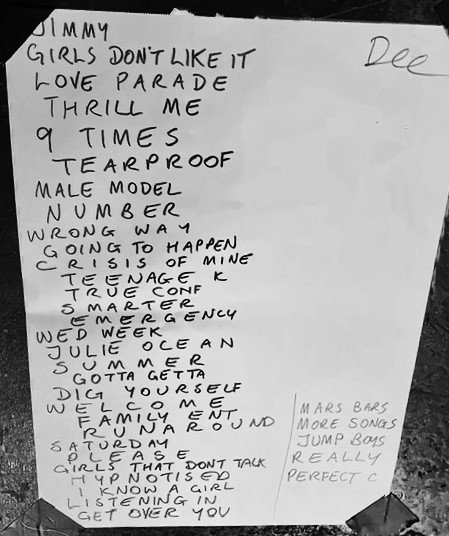 JIMMY
Dee
GIRLS DON'T LIKE IT
LOVE PARADE
THRILL ME
9 TIMES
TEARPROOF
MALE MODEL
NUMBER
WRONG WAY
GOING TO HAPPEN
CRISIS OF MINE
TEENAGE K
TRUE CONF
SMARTER
EMERGENCY
WED WEEK
JULIE OCEAN
SUMMER
GOTTA GETTA
DIG YOURSELF
WELCOME
FAMILY ENT
RUNAROUND
SATURDAY
PLEASE
GIRLS THAT DONT TALK
HYPNOTISED
I KNOW A GIRL
LISTENING IN
GET OVER YOU
MARS BARS
MORE SONGS
JUMP BOYS
REALLY
PERFECT C